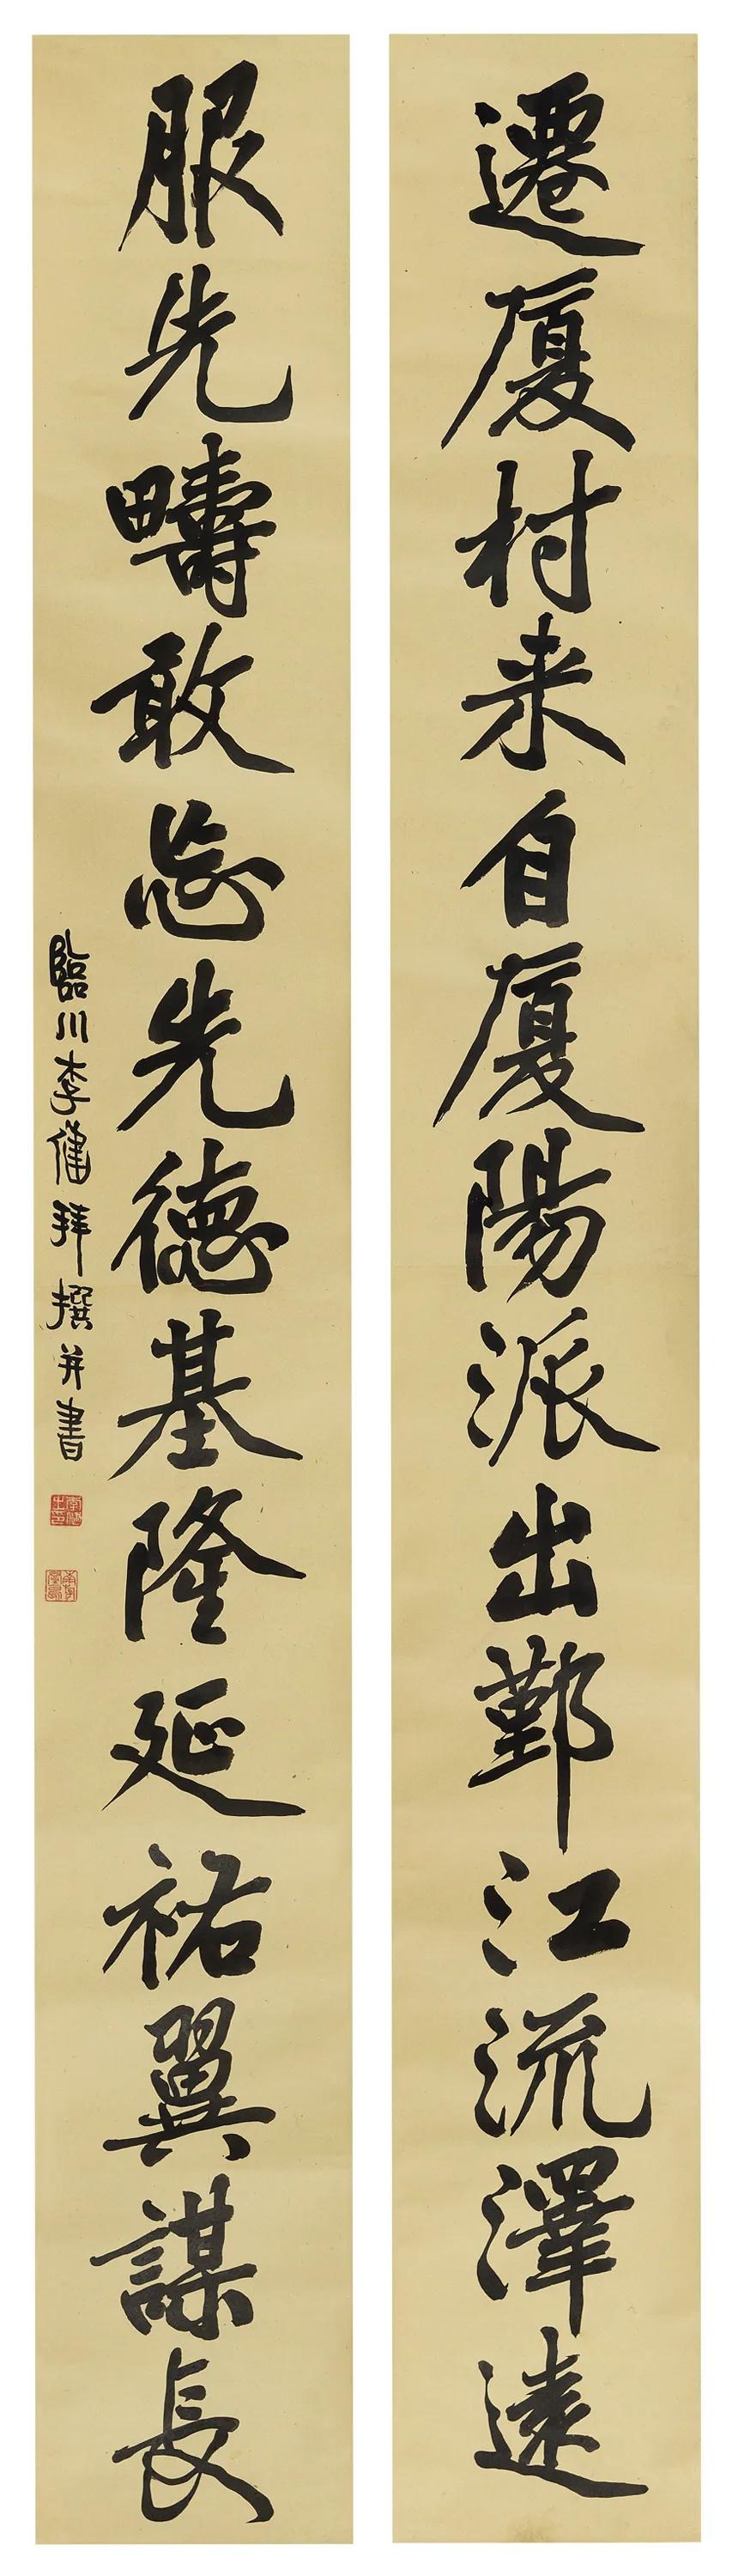 遷厦村来自厦陽派出鄞江流澤遠
服先疇敢忘先德基隆延祐翼謀長
臨川李健拜撰并書